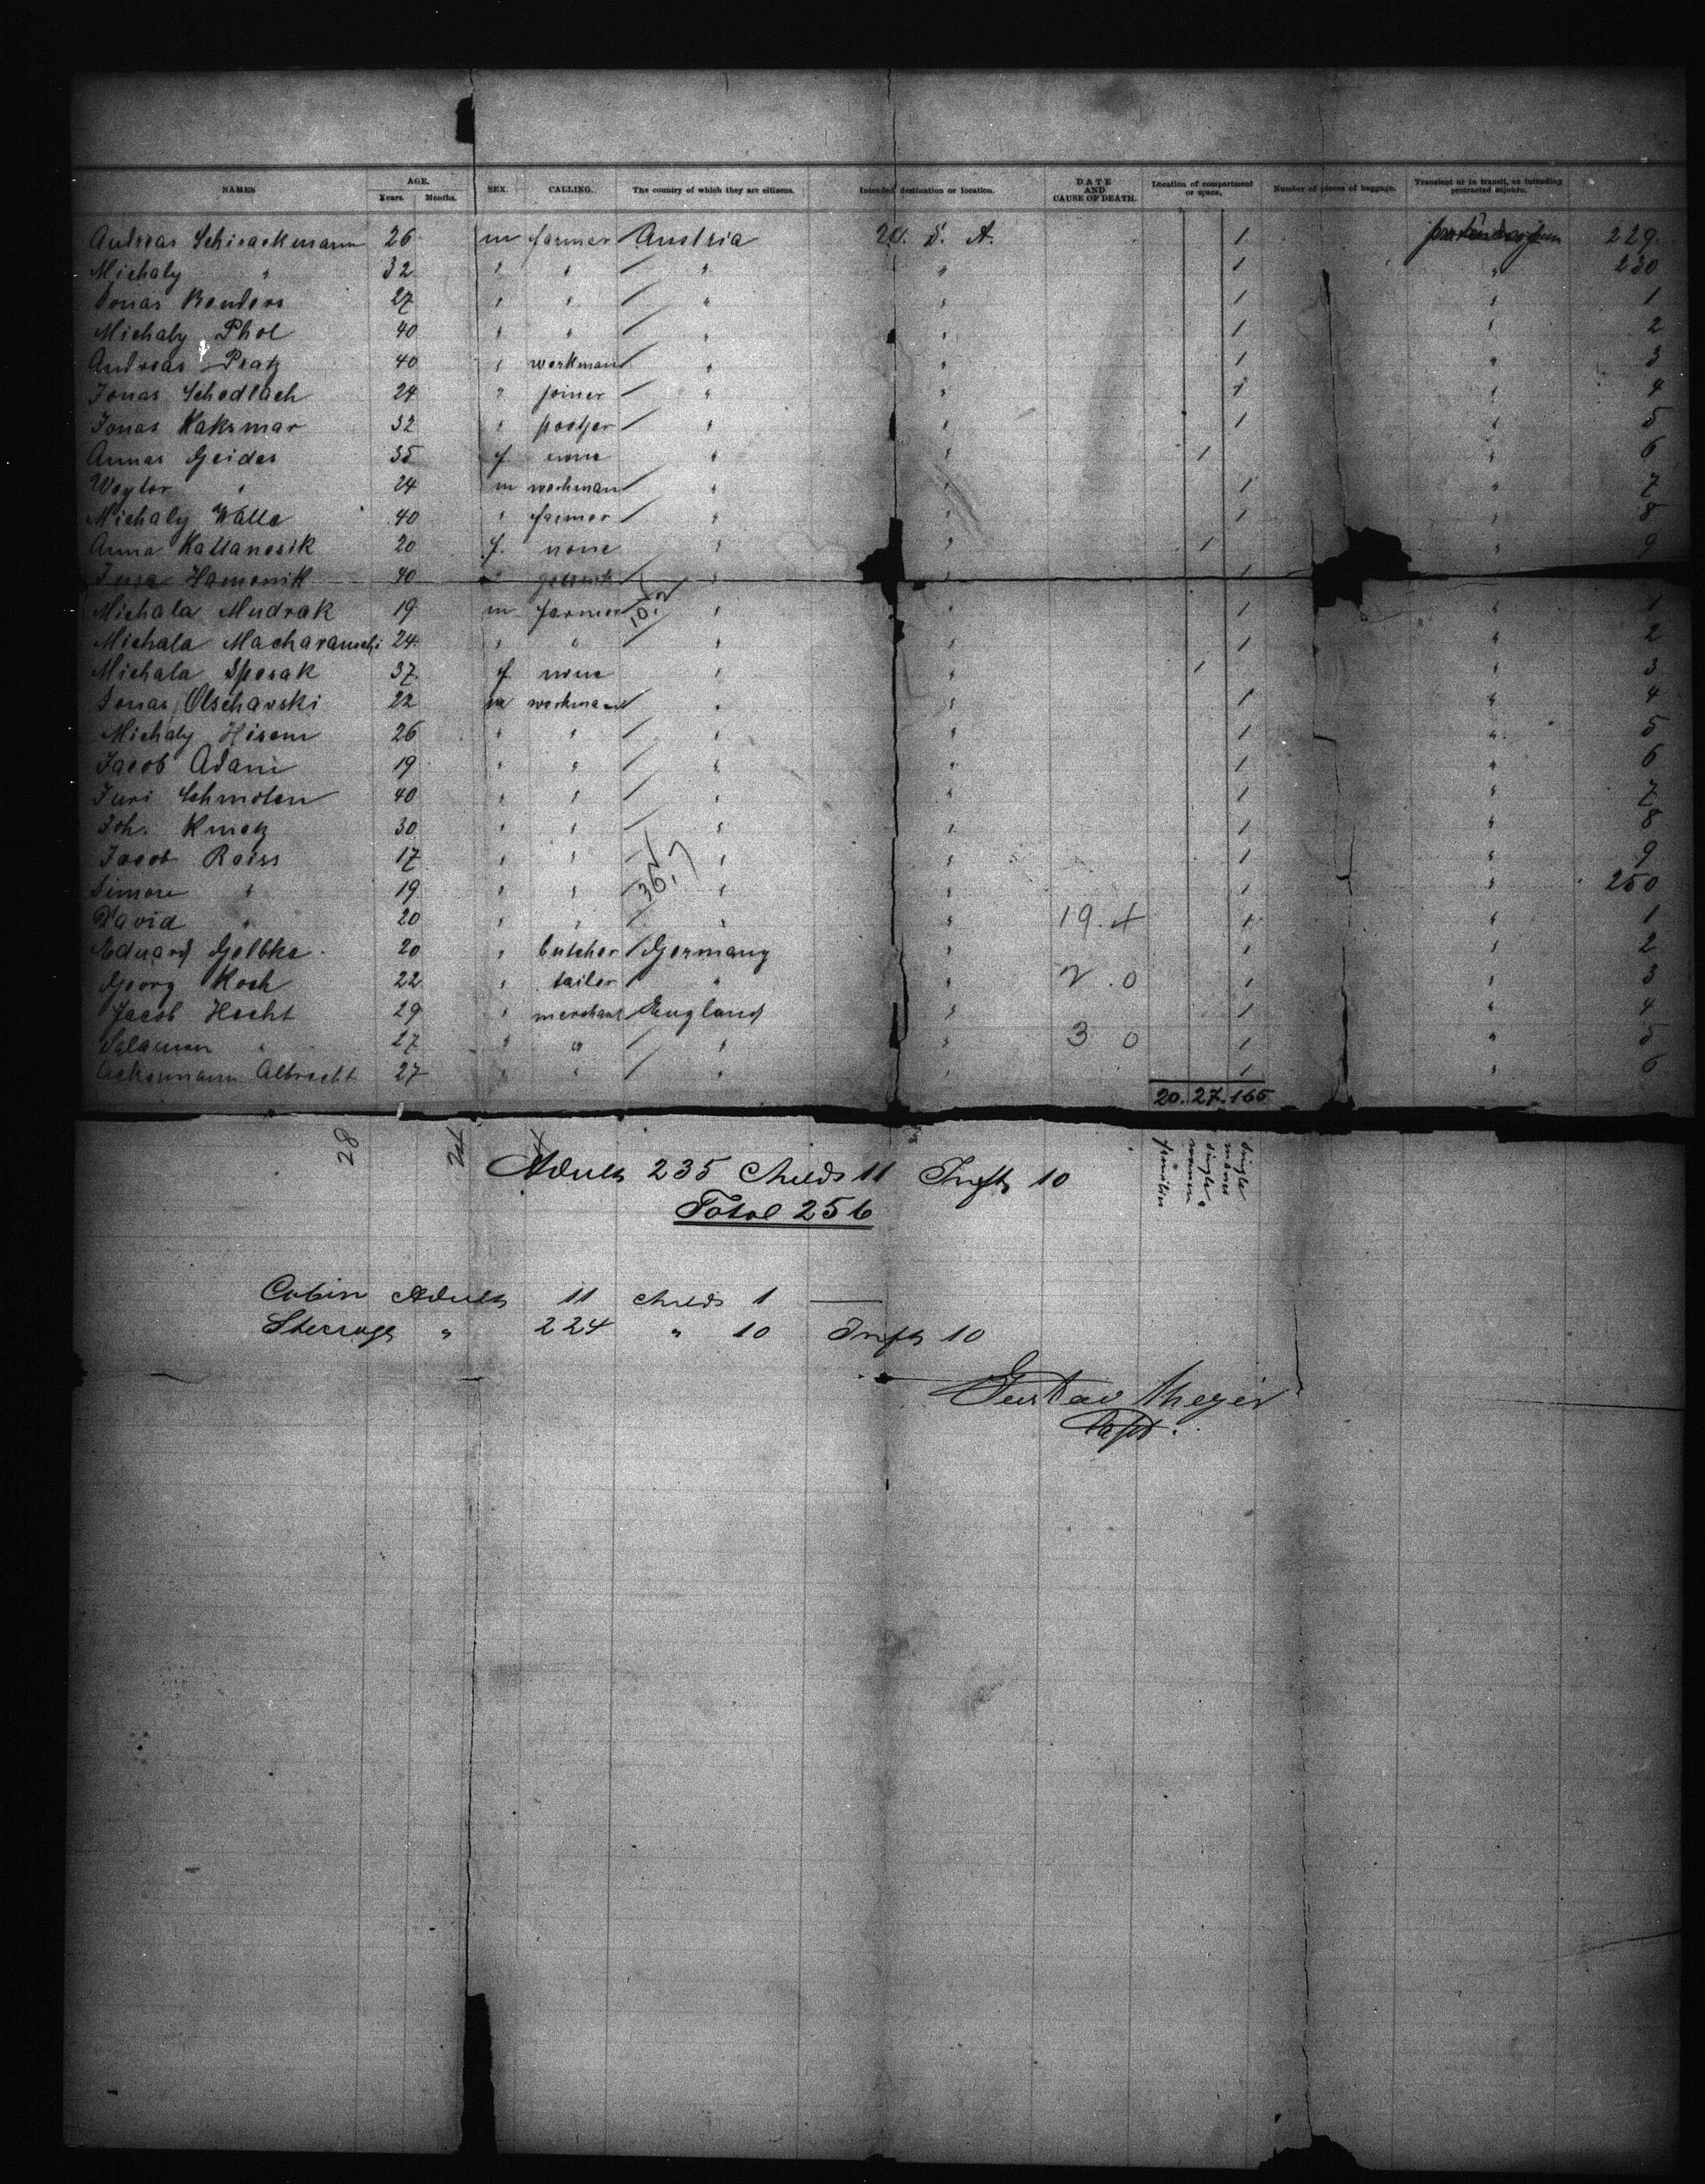 NAMES AGE. Years. Months. SEX. CALLING. The country of which they are citizens. Intended destination or location. DATE AND CAUSE OF DEATH. Location of compartment or space. Number of pieces of baggage. Transient or in transit, or intending protracted sojourn.
Andreas Schirackmann 26 m farmer / Austria U. S. A. 1 229
Michaly " 32 " " / " " 1 " 230
Jonas Benders 27 " " / " " 1 " 1
Michaly Phol 40 " " / " " 1 " 2
Andreas Pratz 40 " workman / " " 1 " 3
Jonas Schedlach 24 " joiner / " " 1 " 4
Jonas Kaksmar 32 " / " " 1 " 5
Annas Geider 35 f none " " 1 " 6
Woytor " 24 m workman / " " 1 " 7
Michaly Walle 40 " farmer / " " 1 " 8
Anna Kattanesik 20 f. none " " 1 " 9
Hamenik 40 " 1
Michala Mudrak 19 m farmer / " " 1 " 1
Michala Macharauschi 24 " " / " " 1 " 2
Michala Spesak 37 f none " " 1 " 3
Jonas Olschavski 22 m workman / " " 1 " 4
Michaly Hisem 26 " " / " " 1 " 5
Jacob Adam 19 " " / " " 1 " 6
Juri Schmolen 40 " " / " " 1 " 7
Joh. Kmetz 30 " " / " " 1 " 8
Jacob Raiss 17 " " / " " 1 " 9
Simore " 19 " " / " " 1 " 250
David " 20 " " / " " 19.4 1 " 1
Eduard Gelbke 20 " butcher / Germany " 1 " 2
Georg Koch 22 " tailor / " " 2.0 1 " 3
Jacob Hecht 29 " merchant / England " 1 " 4
Salamon " 27 " " / " " 3 0 1 " 5
Ackermann Albrecht 27 " " / " " 1 " 6
20. 27. 165
28
families
single women
single mans
Adults 235 Childs 11 Infts 10
Total 256
Cabin Adults 11 Childs 1 —
Steerage " 224 " 10 Infts 10
Gustav Meyer
Capt.